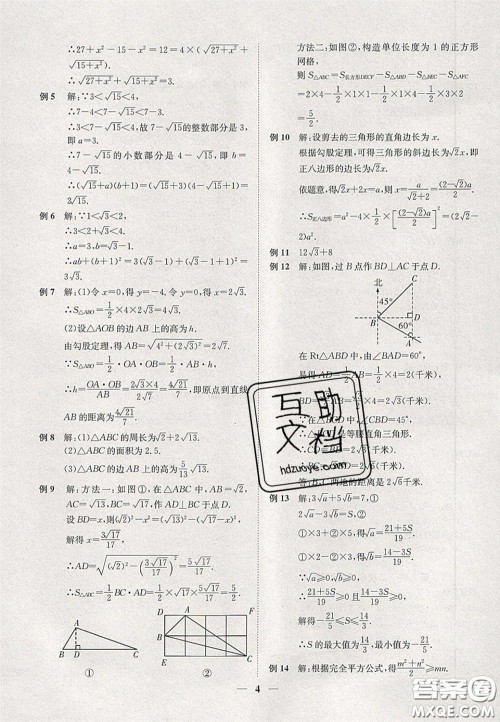 ∴27+x²-15-x²=12=4×(√27+x²-
√15+x²).
∴√27+x²+√15+x²=3.
例5 解:∵3<√15<4,
∴7-4<7-√15<7-3.
∴3<7-√15<4.∴7-√15的整数部分是3,
即a=3.
∴7-√15的小数部分是4-√15,即b=
4-√15.
∴(√15+a)(b+3)=(√15+3)(4-√15+3)
=4√15+6.
例6 解:∵1<√3<2,
∴3<2+√3<4.
∴a=3,b=√3-1.
∴ab+(b+1)²=3(√3-1)+(√3-1+1)²
=3√3.
例7 解:(1)令x=0,得y=-4.令y=0,得x=2√3.
∴S△ABO=1/2×4×2√3=4√3.
(2)设△AOB的边AB上的高为h.
由勾股定理,得AB=√4²+(2√3)²=2√7.
∴S△ABO=1/2·OA·OB=1/2·AB·h.
∴h=OA·OB/AB=2√3×4/2√7=4√21/7,即原点到直线
AB的距离为4√21/7.
例8 解:(1)△ABC的周长为√2+2√13.
(2)△ABC的面积为2.5.
(3)△ABC的边上的高为5/13√13.
例9 解:方法一:如图①,在△ABC中,AB=√2,
AC=√13,BC=√17,作AD⊥BC于点D.
设BD=x,则(√2)²-x²=(√13)²-(√17-x)².
解得x=3/√17.
∴AD=√(√2)²-(3√17/17)²=5√17/17=5/√17.
∴S△ABC=1/2BC·AD=1/2×√17×5/√17=5/2.
A
B D C
①
D A F
B
E C
②
方法二:如图②,构造单位长度为1的正方形
网格,
则S△ABC=S长方形DECF-S△ABD-S△BEC-S△AFC
=2×4-1/2×1×1-1/2×1×4-1/2×3×2=
5/2.
例10 解:设剪去的三角形的直角边长为x.
根据勾股定理,可得三角形的斜边长为√2x,即
正八边形的边长为√2x.
依题意,得√2x+2x=a,则x=a/(√2+2)=(2-√2)a/2.
∴S正八边形=a²-4×1/2×[(2-√2)a/2]²=(2√2-
2)a².
例11 12√3+8
例12 解:如图,过B点作BD⊥AC于点D.
北
45°
B
60°
A
在Rt△ABD中,由∠BAD=60°,
易得
×4=2(千米).
×4=2
(千米).
∠CBD=45°,
等腰直角三角形.
(千米).
两地的距离是2√6千米.
互助
文档
hdzuoye.com
例13 解:3√a+5√b=7,①
2√a-3√b=S,②
①×3+②×5,得√a=(21+5S)/19.
①×2-②×3,得√b=(14-3S)/19.
∵√a≥0,√b≥0,
∴(21+5S)/19≥0且(14-3S)/19≥0.
∴-21/5≤S≤14/3.
∴S的最大值为14/3,最小值为-21/5.
例14 解:根据完全平方公式,得(m²+n²)/2≥mn.
4
答案圈
MXQE.COM